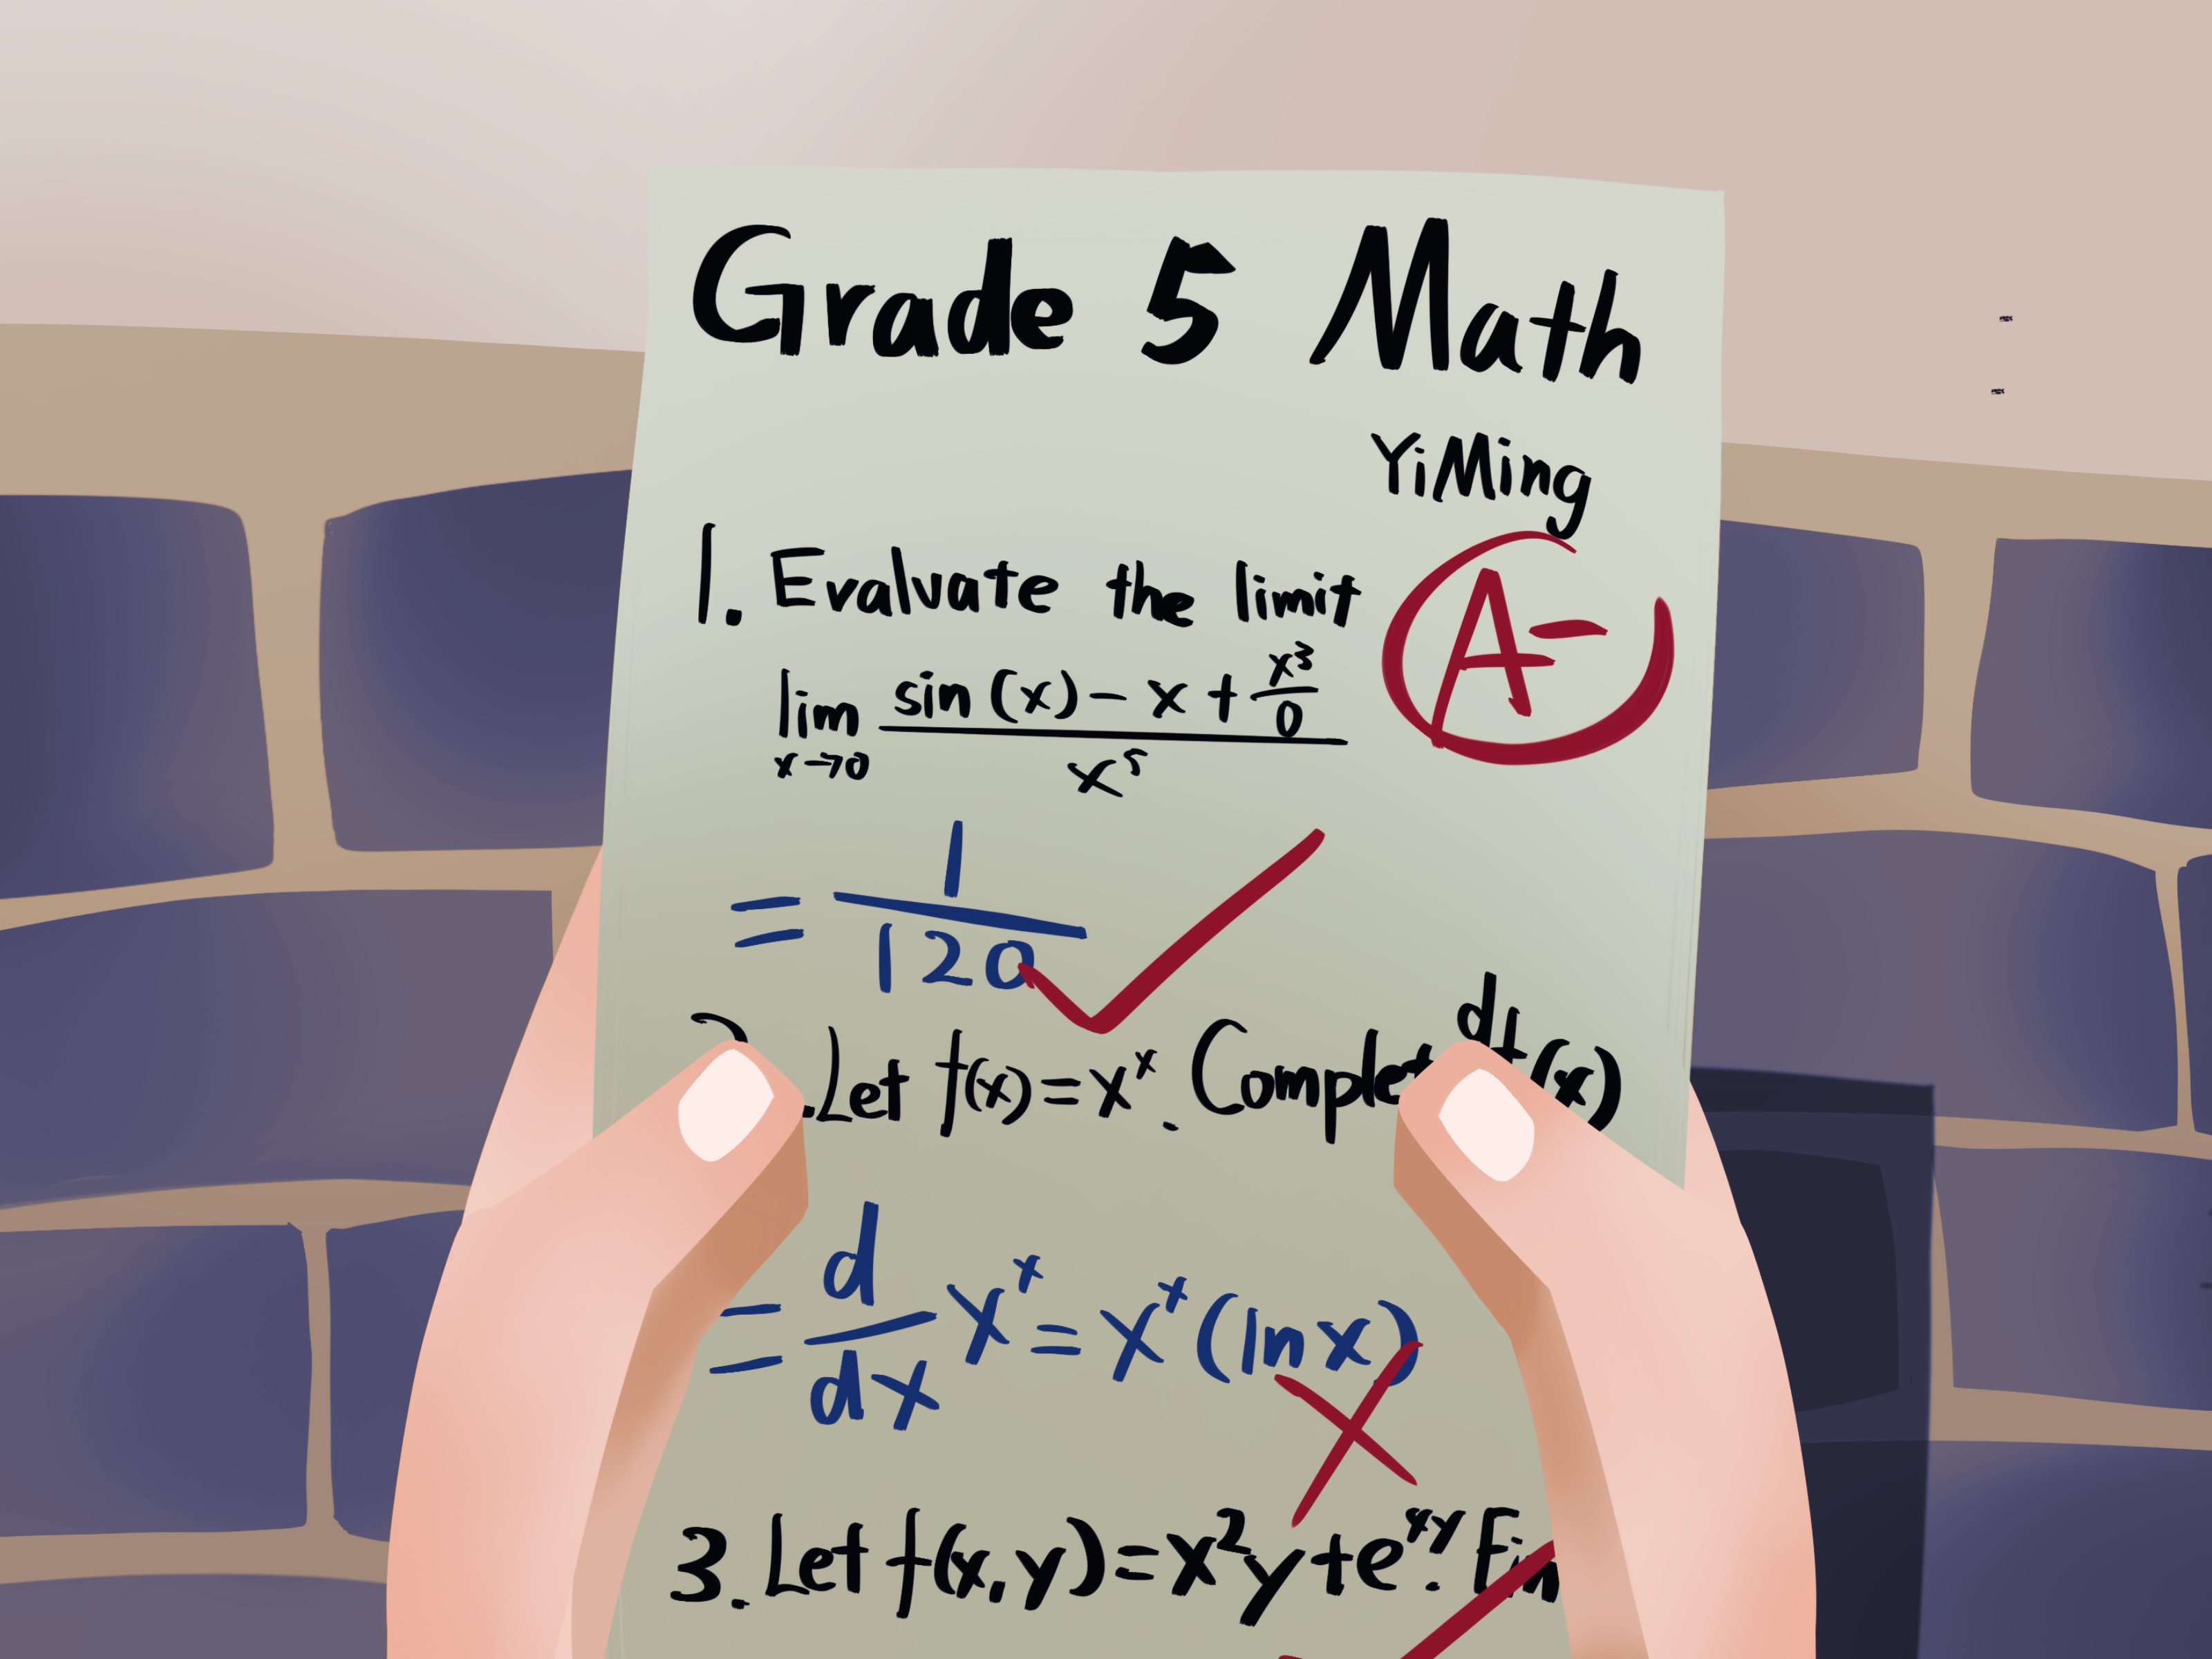 Grade 5 Math
YiMing
1. Evaluate the limit
A-
lim x→0 (sin (x) - x + x³/0) / x⁵
= 1/120
. Let f(x) = xˣ. Complet df(x)
= d/dx xˣ = xˣ (ln x)
3. Let f(x,y) = x²y + eˣʸ. Fin